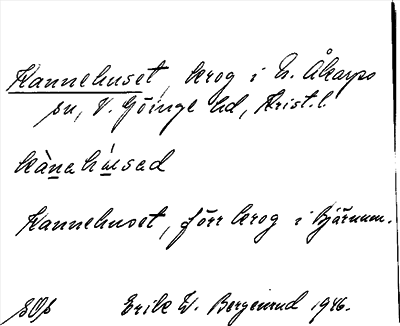 Kannehuset, krog i N. Åkarps
sn, V. Göinge hd, Krist. l.
kànahúsad
Kannehuset, förr krog i Bjärnum.
SOf Erik W. Bergenrud 1946.